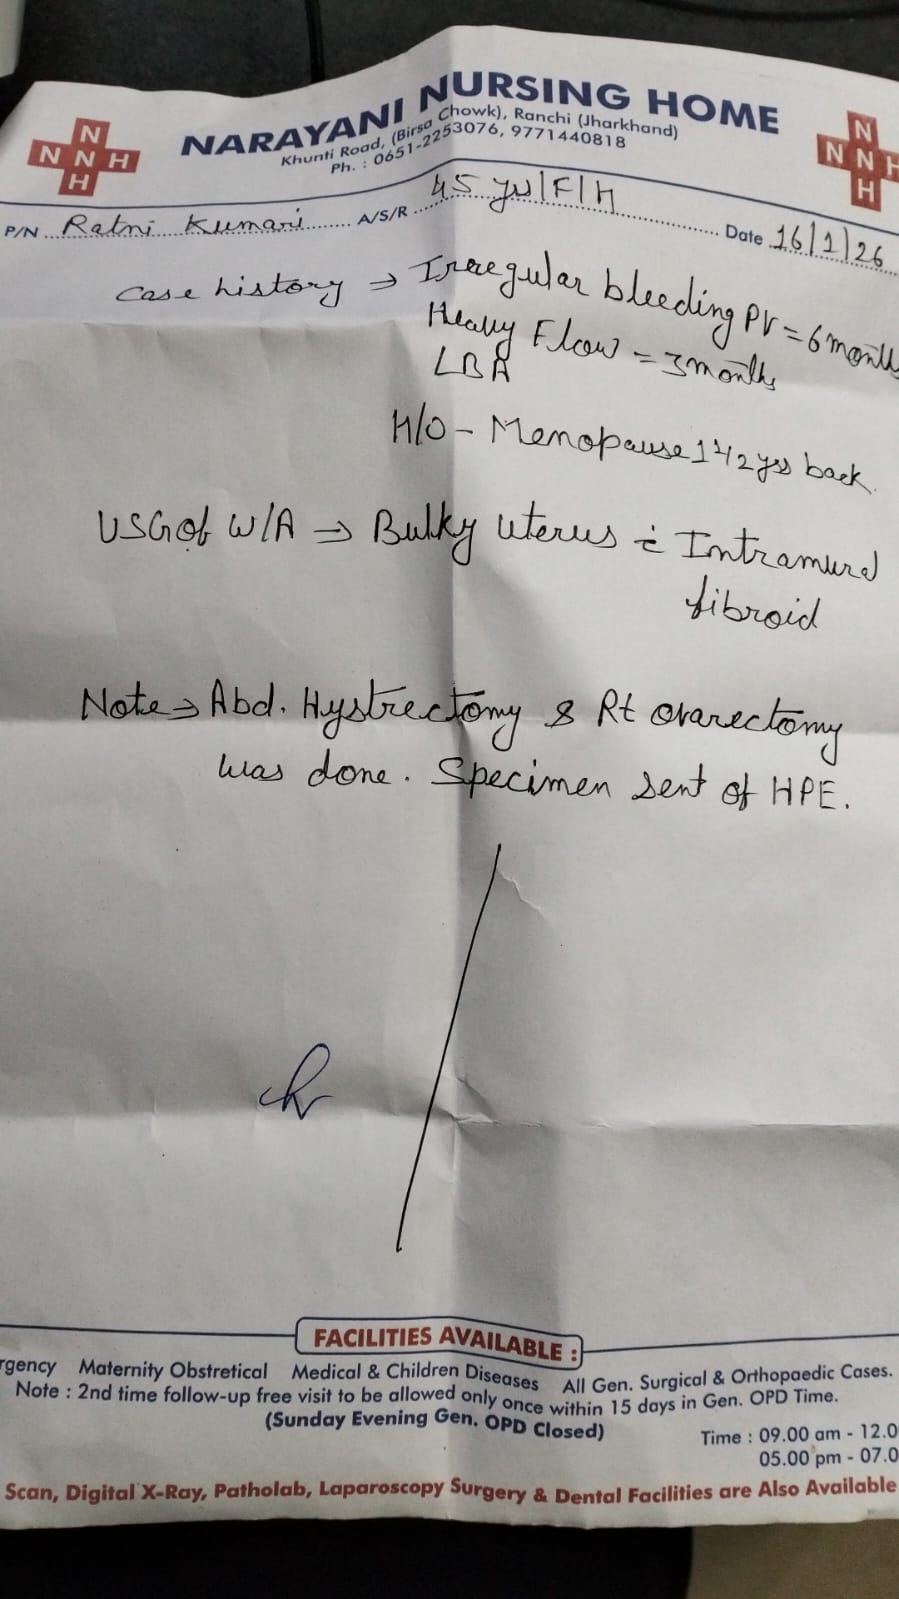 NARAYANI NURSING HOME
Khunti Road, (Birsa Chowk), Ranchi (Jharkhand)
Ph. : 0651-2253076, 9771440818
N
N N H
H
N
N N H
H
P/N Ratni Kumari A/S/R 45 yrs/F/H Date 16/1/26
Case history → Irregular bleeding PV = 6 months
Heavy Flow = 3 months
LBA
H/O - Menopause 1 1/2 yrs back.
USG of W/A ⇒ Bulky uterus c̄ Intramural
fibroid
Note → Abd. Hystrectomy & Rt ovarectomy
was done. Specimen sent of HPE.
FACILITIES AVAILABLE :
rgency Maternity Obstretical Medical & Children Diseases All Gen. Surgical & Orthopaedic Cases.
Note : 2nd time follow-up free visit to be allowed only once within 15 days in Gen. OPD Time.
(Sunday Evening Gen. OPD Closed)
Time : 09.00 am - 12.0
05.00 pm - 07.0
Scan, Digital X-Ray, Patholab, Laparoscopy Surgery & Dental Facilities are Also Available